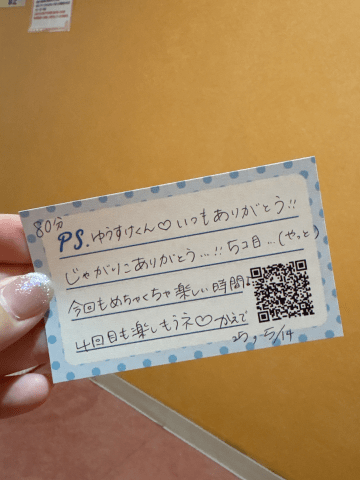 80分
PS.ゆうすけくん♡いつもありがとう!!
じゃがりこありがとう…!!5コ目…(やっと)
今回もめちゃくちゃ楽しい時間♪
4回目も楽しもうネ♡かえで
25, 5/14